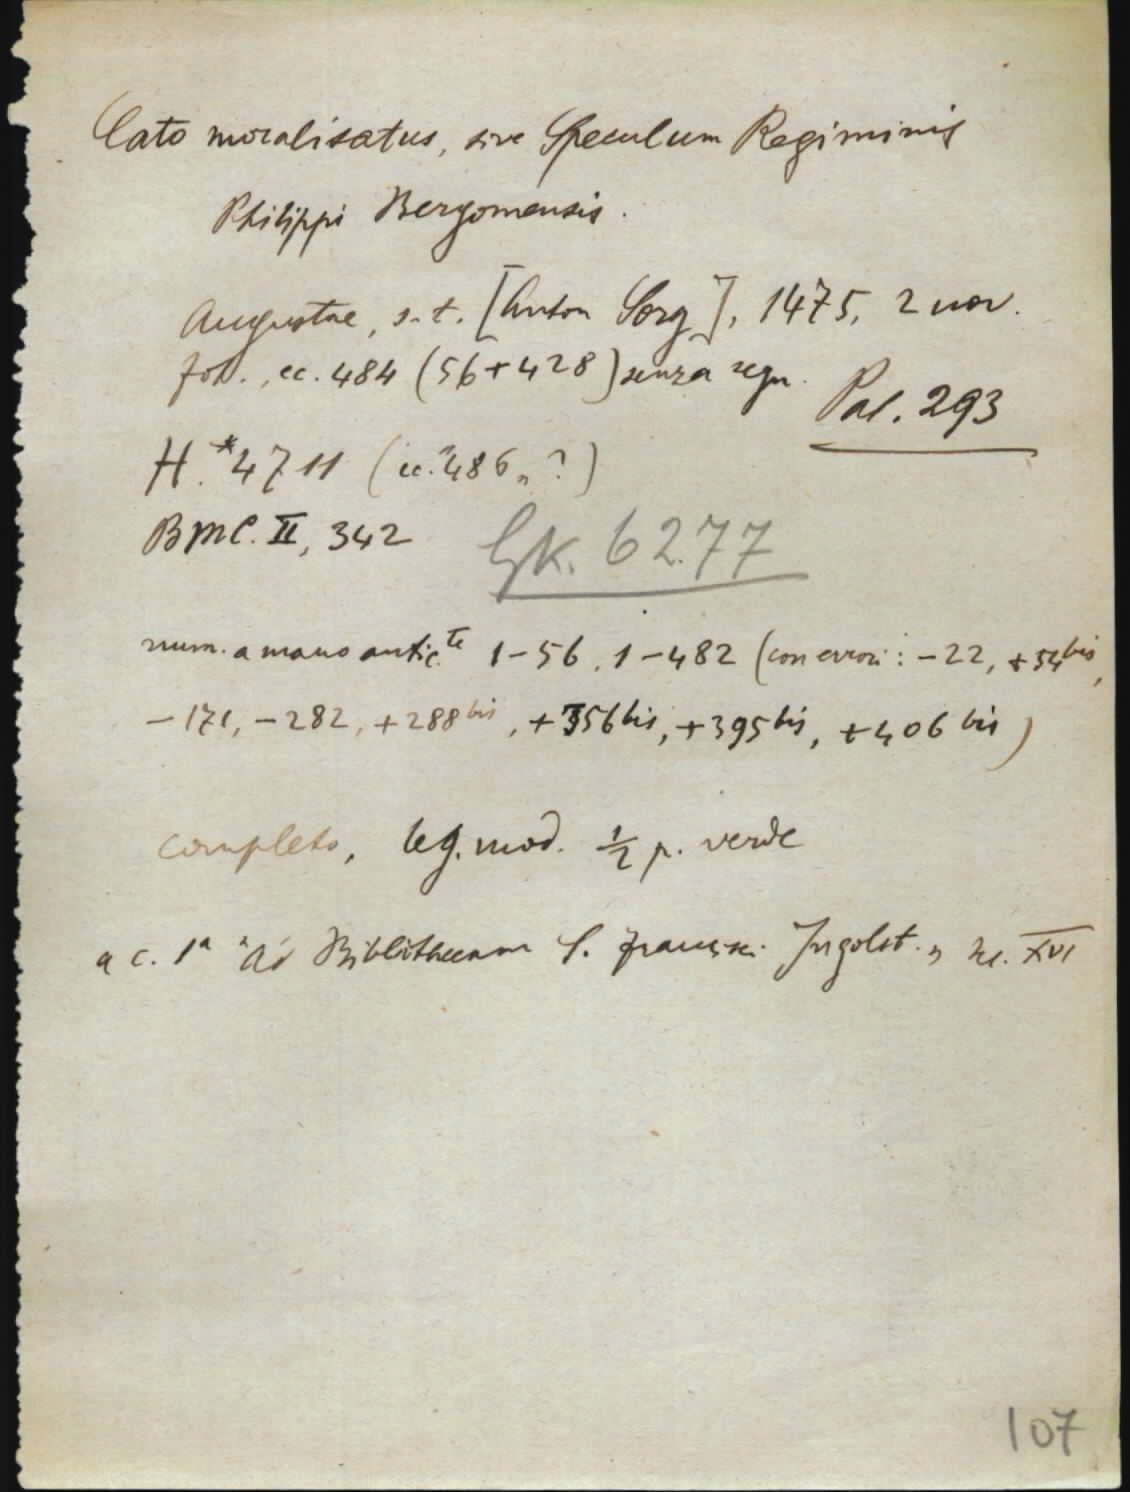 Cato moralisatus, sive Speculum Regiminis
Philippi Bergomensis.
Augustae, s. t. [Anton Sorg], 1475, 2 nov.
fol., cc. 484 (56+428) senza segn.
Pal. 293
H. *4711 (cc. "486" ?)
BMC. II, 342
GK. 6277
num. a mano antic.te 1-56, 1-482 (con errori: -22, +54bis,
-171, -282, +288bis, +356bis, +395bis, +406bis)
completo, leg. mod. ½ p. verde
a c. 1a "Ad Bibliothecam S. Francisci Ingolst." sec. XVI
107